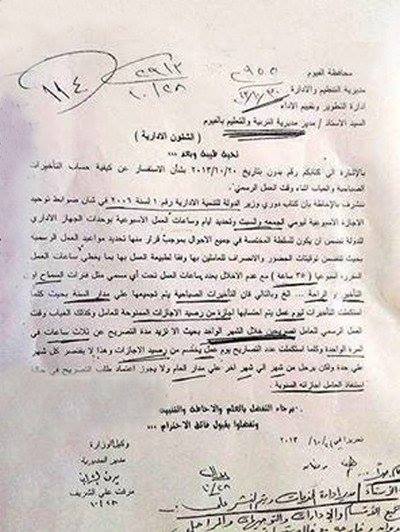 محافظة الفيوم
مديرية التنظيم والادارة
ادارة التطوير وتقييم الاداء
السيد الاستاذ / مدير مديرية التربية والتعليم بالفيوم
( الشئون الادارية )
تحية طيبة وبعد ،،،
بالإشارة الي كتابكم رقم بدون بتاريخ ٢٠١٣/١٠/٢٠ بشأن الاستفسار عن كيفية حساب التأخيرات
الصباحية والغياب اثناء وقت العمل الرسمي
نتشرف بالإحاطة بان كتاب دوري وزير الدولة للتنمية الادارية رقم ١ لسنة ٢٠٠٦ في شان ضوابط توحيد
الاجازة الاسبوعية ليومي الجمعه والسبت وتحديد ايام وساعات العمل الاسبوعية بوحدات الجهاز الاداري
للدولة تضمن ان يكون للسلطة المختصة في جميع الاحوال بموجب قرار منها تحديد مواعيد العمل الرسمية
بحيث تتضمن توقيتات الحضور والانصراف للعاملين بها وفقا لطبيعة العمل بها بما يغطي ساعات العمل
المقررة اسبوعيا ( ٣٥ ساعة ) مع عدم الاخلال بعدد ساعات العمل تحت أي مسمي مثل فترات السماح او
التأخير او الراحة ... الخ وبالتالي فان التأخيرات الصباحية يتم تجميعها علي مدار السنة بحيث كلما
استكملت التأخيرات ليوم عمل يتم احتسابها اجازة من رصيد الاجازات الممنوحة للعامل وكذلك الغياب وقت
العمل الرسمي للعامل تصريحين خلال الشهر الواحد بحيث الا تزيد مدة التصريح عن ثلاث ساعات في
المرة الواحدة وكلما استكملت عدد التصاريح يوم عمل يخصم من رصيد الاجازات وهذا لا يقتصر كل شهر
علي حدة ولكن يرحل من شهر الي شهر اخر علي مدار العام ولا يجوز اعتماد طلب التصريح في حالة
استنفاذ العامل اجازاته السنوية .
برجاء التفضل بالعلم والاحاطة والتنبيه
وتفضلوا بقبول فائق الاحترام ،،،
تحريرا في / ١٠ / ٢٠١٣
وكيل الوزارة
مدير المديرية
مرفت علي الشريف